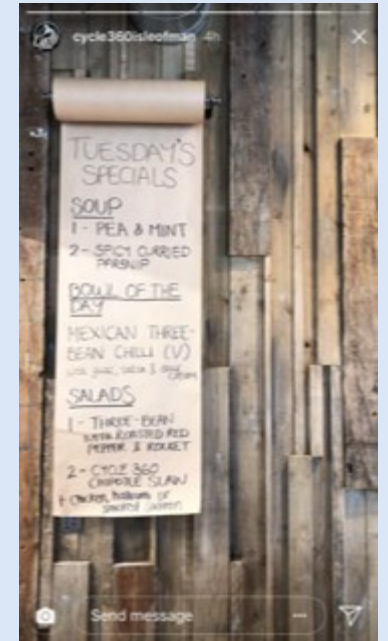 cycle360isleofman 4h
TUESDAY'S
SPECIALS
SOUP
1 - PEA & MINT
2 - SPICY CURRIED
PARSNIP
BOWL OF THE
DAY
MEXICAN THREE-
BEAN CHILLI (V)
with guac, salsa & sour
cream
SALADS
1 - THREE-BEAN
WITH ROASTED RED
PEPPER & ROCKET
2 - CYCLE 360
CHIPOTLE SLAW
+ chicken, halloumi or
smoked salmon
Send message